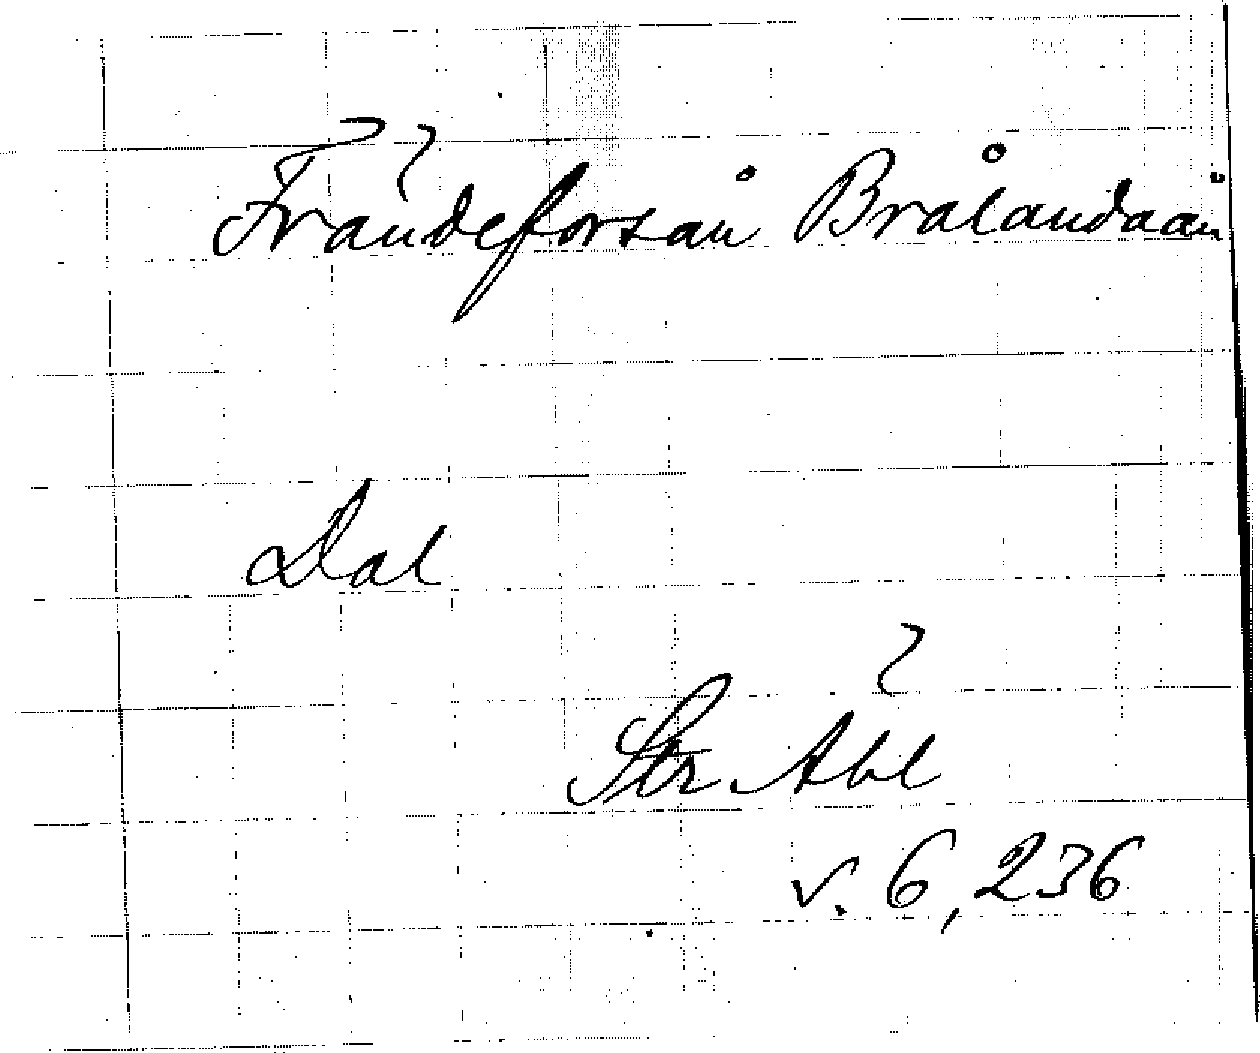 Frändeforsån Brålandaån
Dal
Str Åbl
v. 6, 236